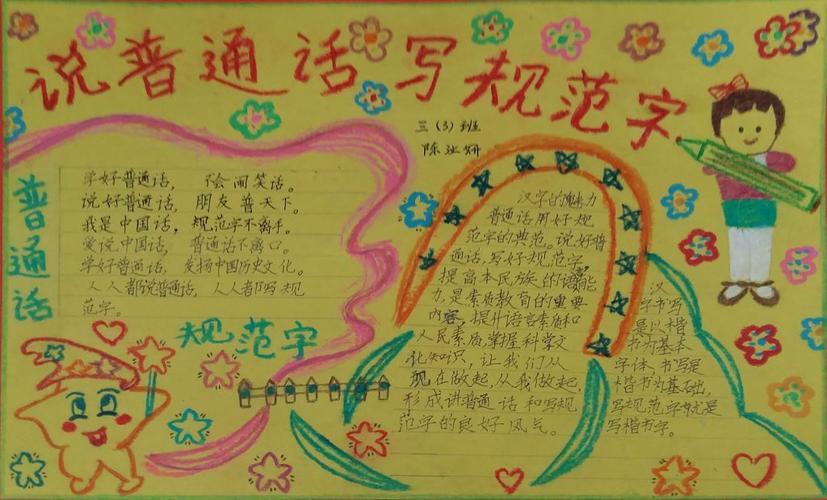 说普通话写规范字
三（3）班
普通话
学好普通话， 不会闹笑话。
说好普通话， 朋友普天下。
我是中国话， 规范字不离手。
爱说中国话， 普通话不离口。
学好普通话， 发扬中国历史文化。
人人都说普通话，人人都写规
范字。
规范字
汉字的魅力
普通话用好规
范字的典范。说好普
通话，写好规范字，
提高本民族的语能
力，是素质教育的重要
内容，提升语言素质和
人民素质，掌握科学文
化知识，让我们从
现在做起，从我做起，
形成讲普通话和写规
范字的良好风气。
汉
字书写
是以楷
书为基本
字体，书写是
楷书为基础，
写规范字就是
写楷书字。